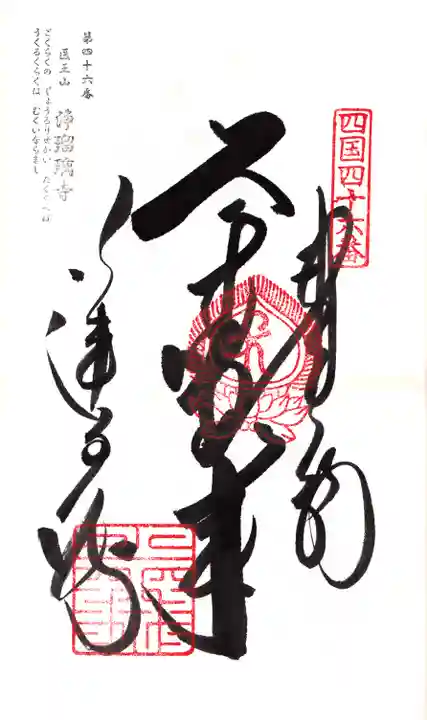 四国四十六番
奉納
薬師如来
浄瑠璃寺
第四十六番
医王山
浄瑠璃寺
ごくらくの じょうるりせかい たくらへば
うくるくらくは むくいならまし